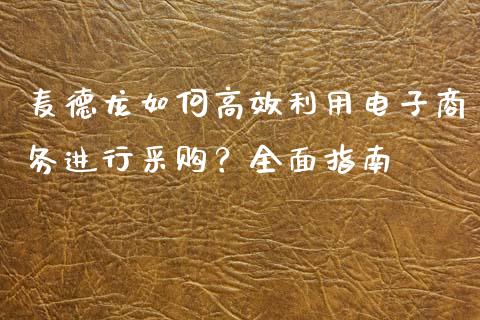 麦德龙如何高效利用电子商
务进行采购？全面指南